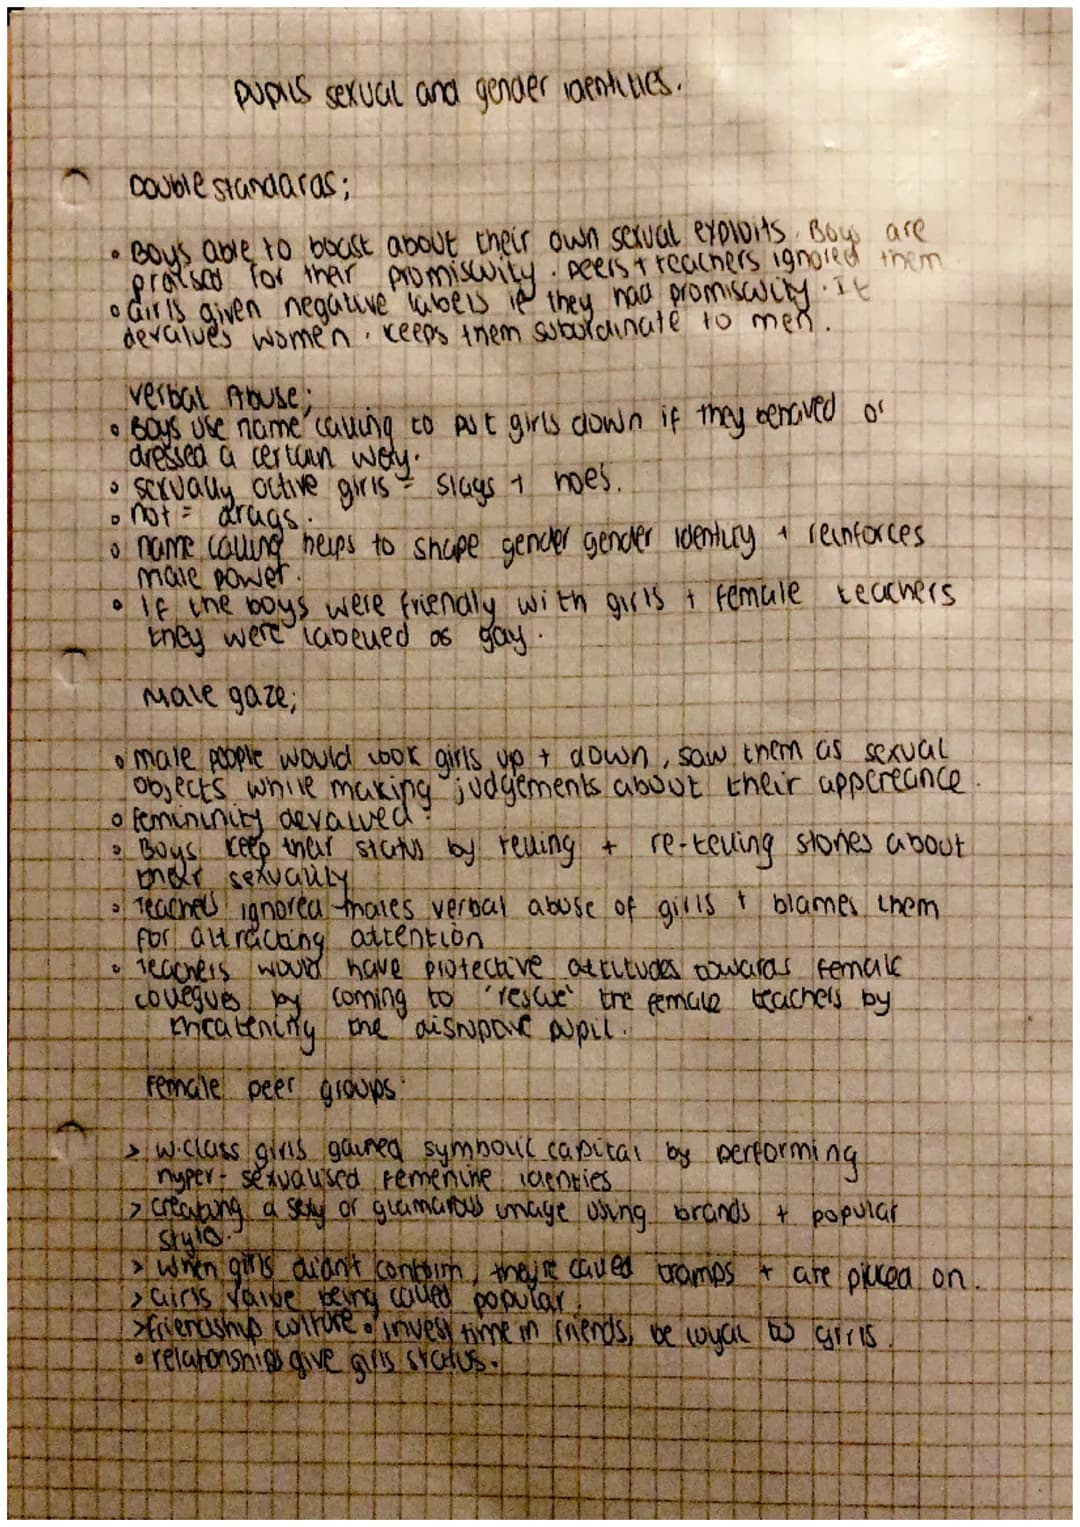 pupils sexual and gender identities.
Double standards;
• Boys able to boast about their own sexual exploits. Boys are
praised for their promiscuity. peers + teachers ignored them
• Girls given negative labels if they had promiscuity. It
devalues women. keeps them subordinate to men.
verbal Abuse;
• Boys use name calling to put girls down if they behaved or
dressed a certain way.
• sexually active girls = slags + hoes.
• not = drags.
• name calling helps to shape gender gender identity + reinforces
male power.
• If the boys were friendly with girls + female teachers
they were labelled as gay.
Male gaze;
• male people would look girls up + down, saw them as sexual
objects while making judgements about their appereance.
• femininity devalued.
• Boys keep their status by telling + re-telling stories about
their sexuality
• Teachers ignored males verbal abuse of girls + blames them
for attracting attention
• Teachers would have protective attitudes towards female
collegues by coming to 'rescue' the female teachers by
threatening the disruptive pupil.
Female peer groups.
> w.class girls gained symbolic capital by performing
hyper-sexualised femenine identies
> creating a sexy or glamarous image using brands + popular
styles.
> when girls didn't conform, they're called tramps + are picked on.
> Girls value being called popular.
> friendship culture • invest time in friends, be loyal to girls.
• relationships give girls status.